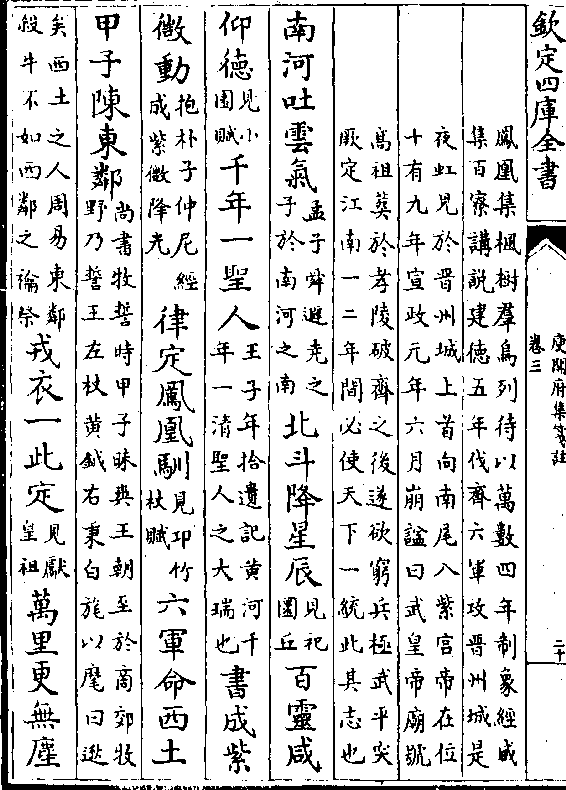 欽定四庫全書
庾開府集箋註
卷三
二十
鳳凰集楓樹羣烏列待以萬數四年制象經成
集百寮講說建德五年伐齊六軍攻晉州城是
夜虹見於晉州城上首向南尾入紫宫帝在位
十有九年宣政元年六月崩謚曰武皇帝廟號
高祖葬於孝陵破齊之後遂欲窮兵極武平突
厥定江南一二年間必使天下一統此其志也
南河吐雲氣孟子舜避堯之子於南河之南北斗降星辰見祀圜丘百靈咸
仰德見小園賦千年一聖人王子年拾遺記黄河千年一清聖人之大瑞也書成紫
微動抱朴子仲尼經成紫微降光律定鳳凰馴見卭竹杖賦六軍命西土
甲子陳東鄰尚書牧誓時甲子昧爽王朝至於商郊牧野乃誓王左杖黄鉞右秉白旄以麾曰逖
矣西土之人周易東鄰殺牛不如西鄰之禴祭戎衣一此定見獻皇祖萬里更無塵